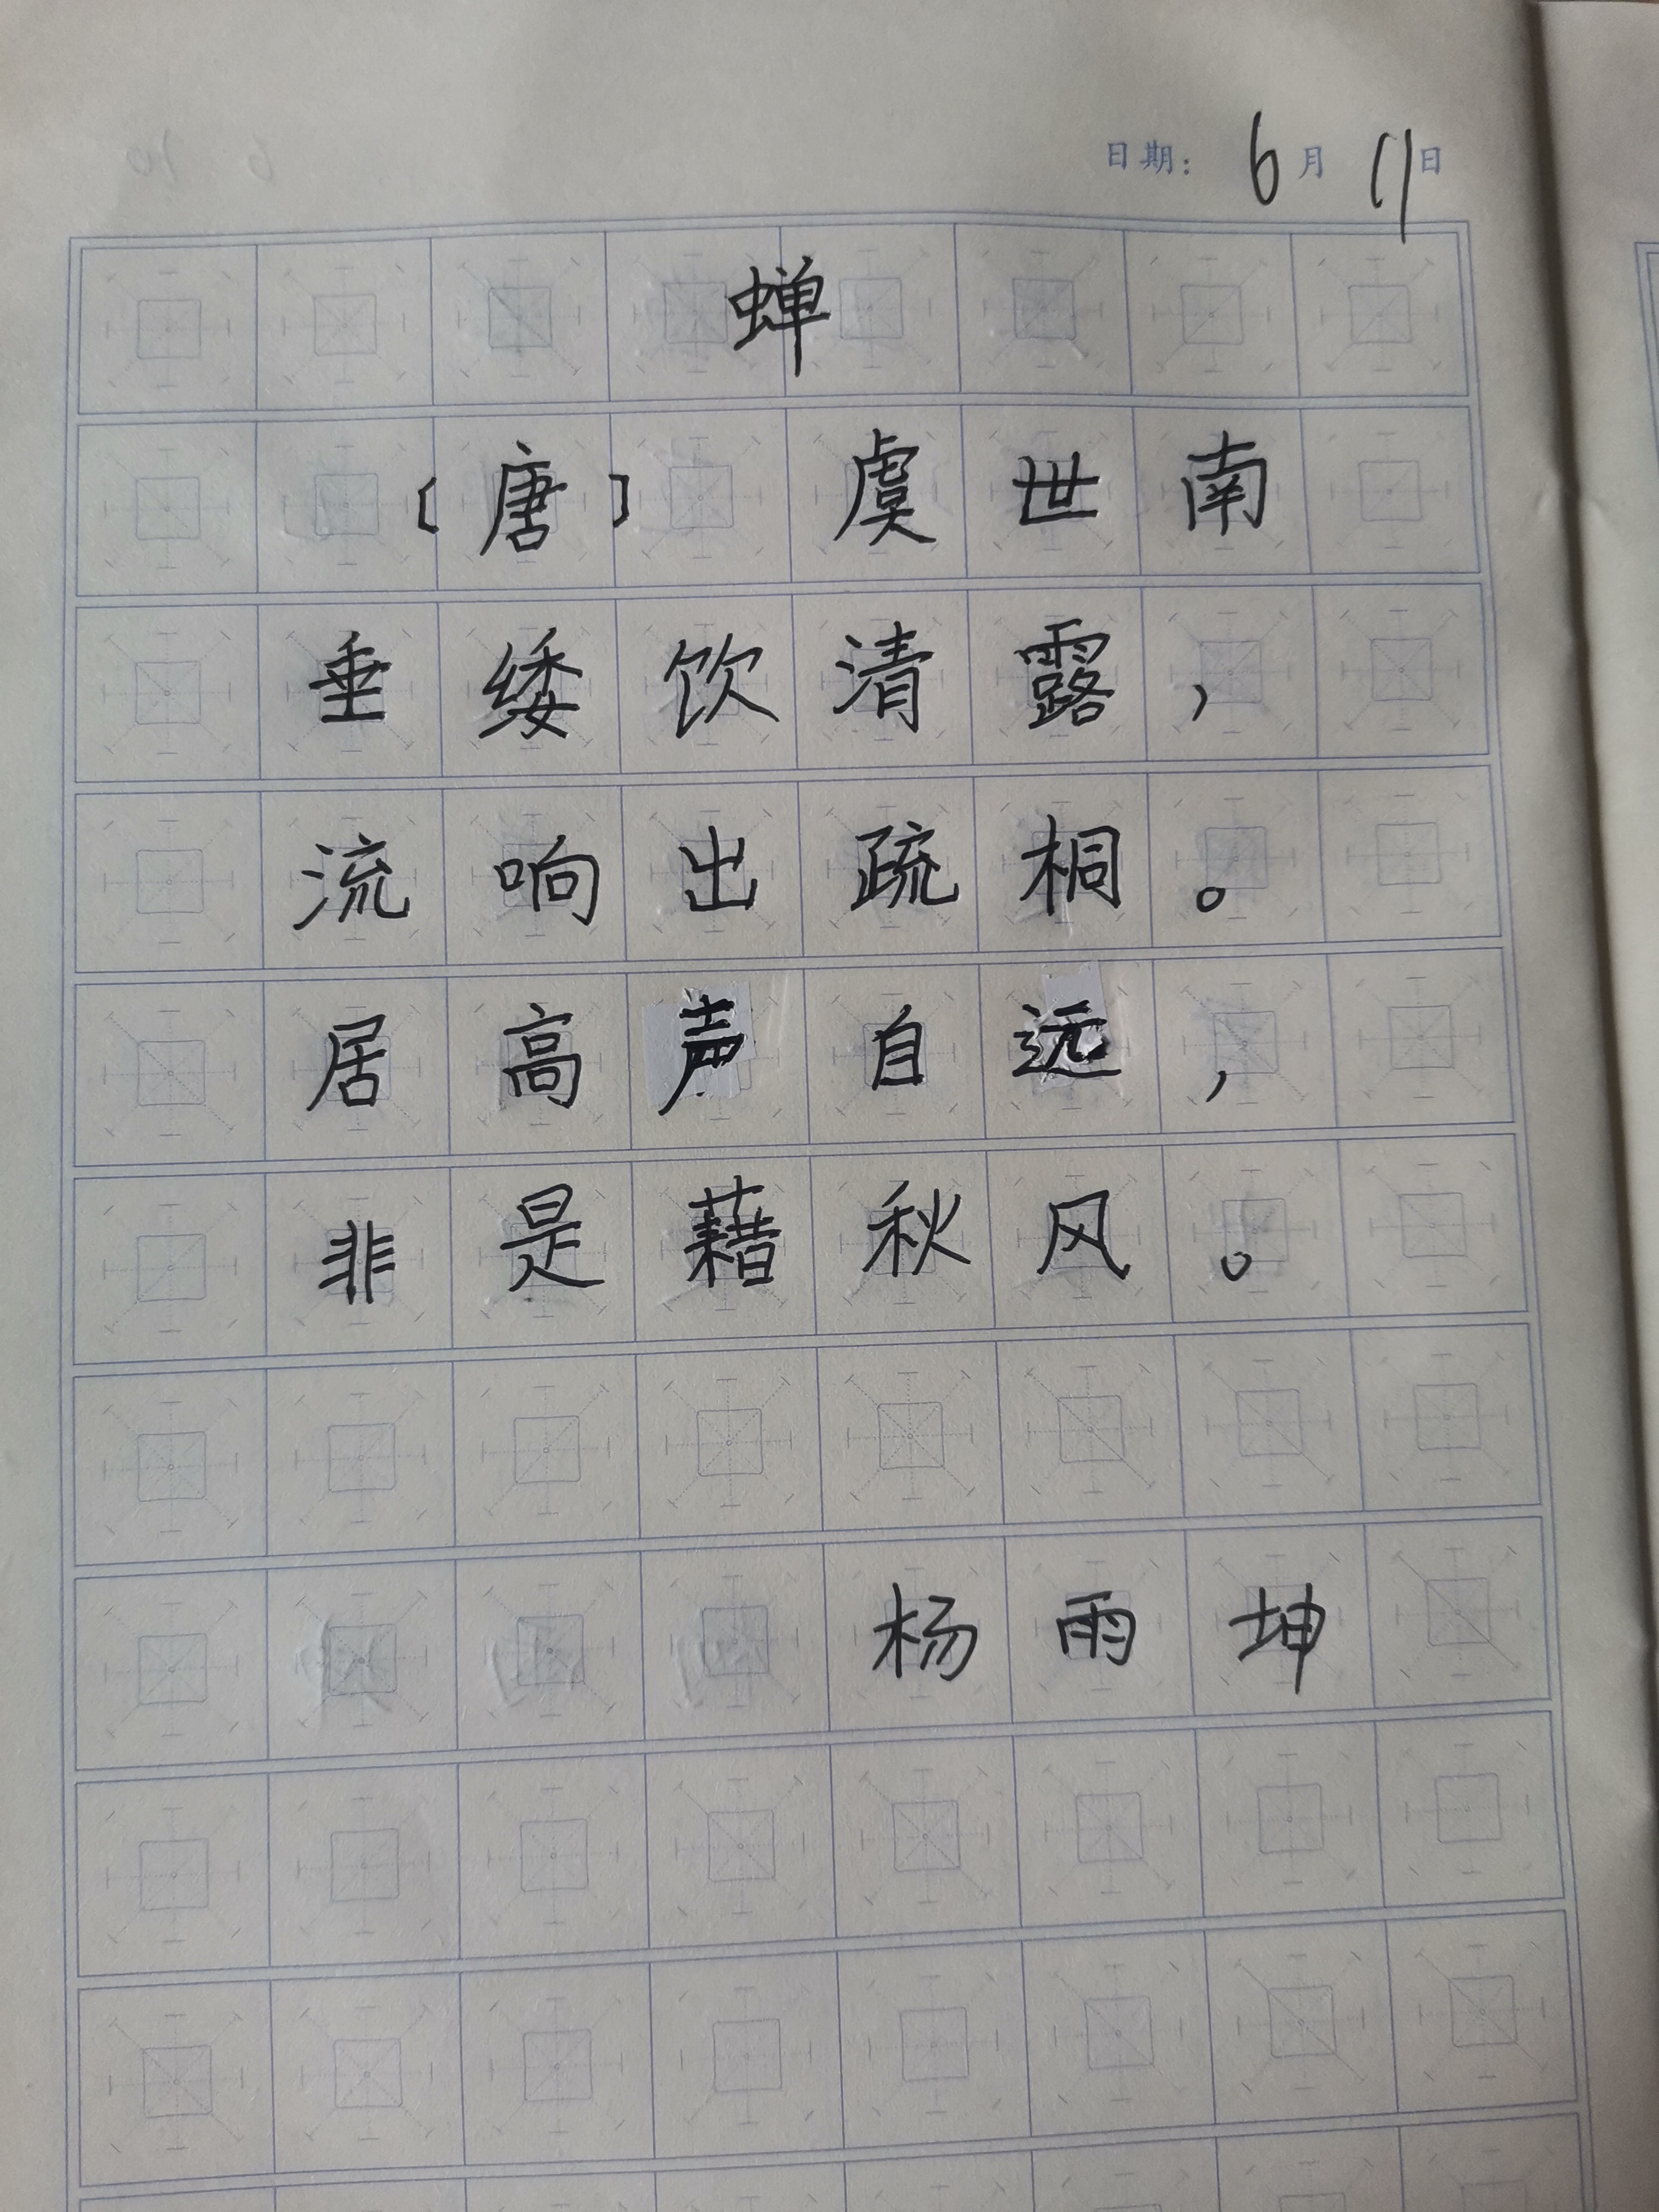 日期: 6月11日
蝉
〔唐〕 虞世南
垂緌饮清露，
流响出疏桐。
居高声自远，
非是藉秋风。
杨雨坤